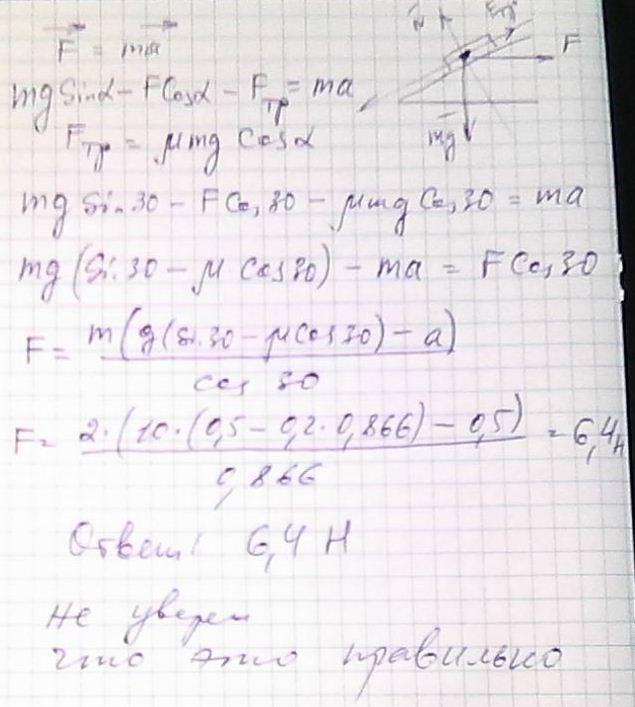 F = ma
mg Sinα - F Cosα - Fтр = ma
Fтр = μmg Cosα
F
mg
mg Sin 30 - F Cos 30 - μmg Cos 30 = ma
mg (Sin 30 - μ Cos 30) - ma = F Cos 30
F = m(g(Sin 30 - μ Cos 30) - a) / cos 30
F = 2·(10·(0,5 - 0,2·0,866) - 0,5) / 0,866 = 6,4 н
Ответ: 6,4 Н
не уверен
что это правильно